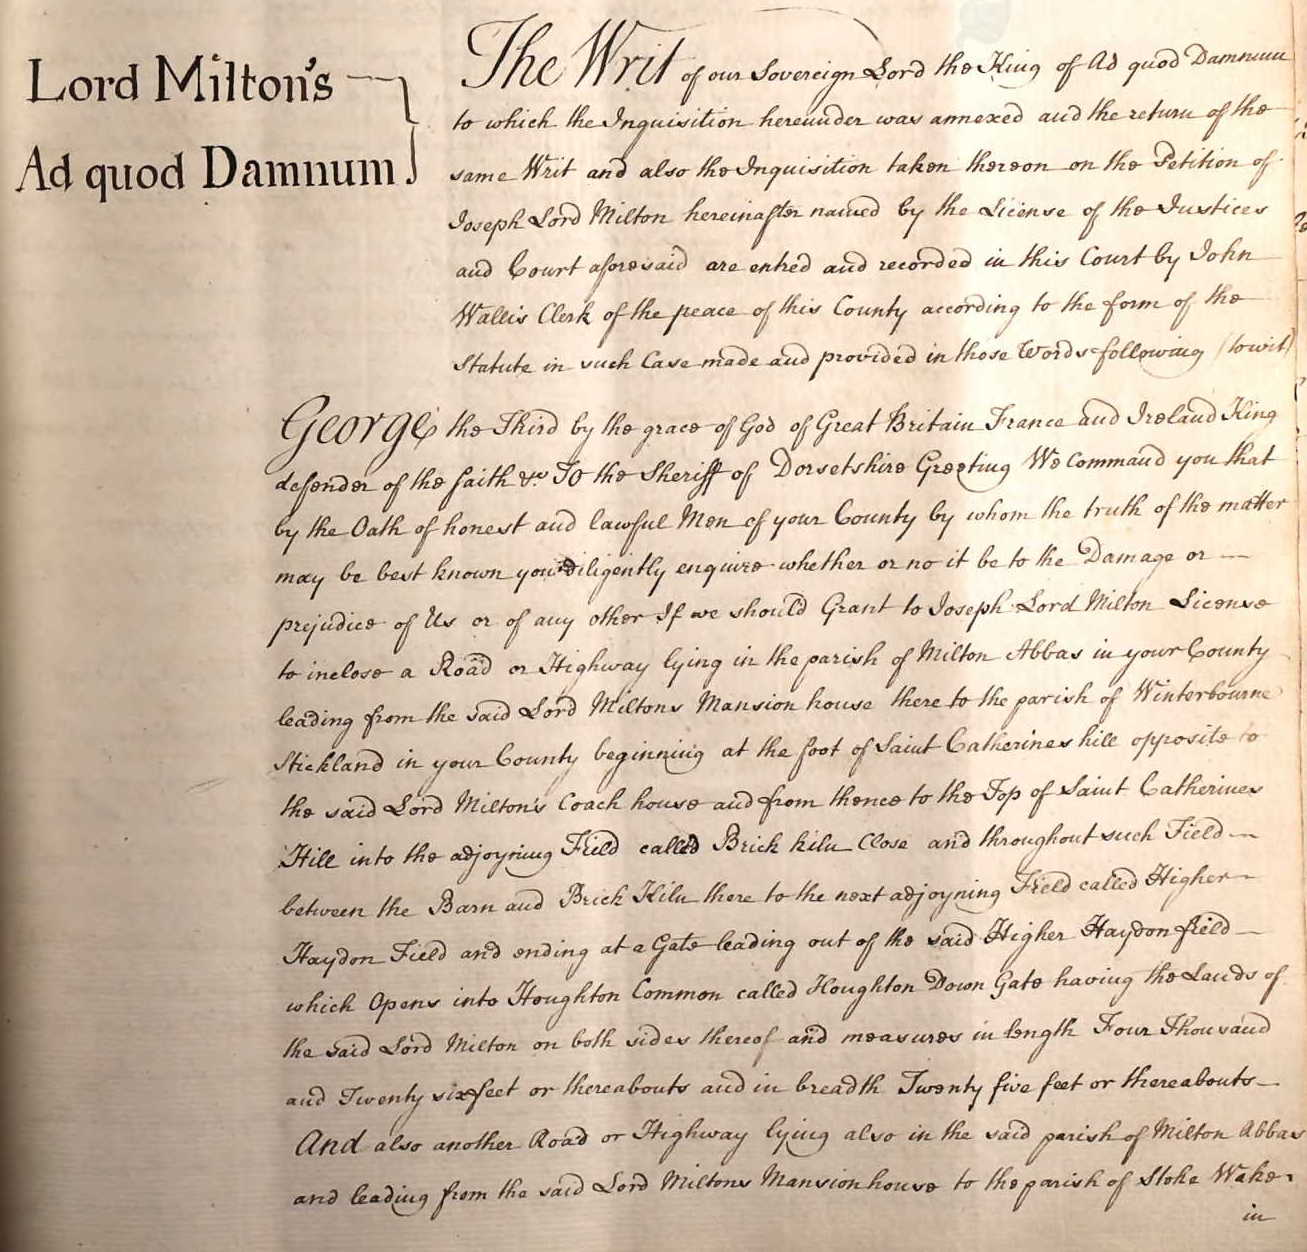 Lord Milton's
Ad quod Damnum
The Writ of our Sovereign Lord the King of Ad quod Damnum
to which the Inquisition hereunder was annexed and the return of the
same Writ and also the Inquisition taken thereon on the Petition of
Joseph Lord Milton hereinafter named by the License of the Justices
and Court aforesaid are entred and recorded in this Court by John
Wallis Clerk of the peace of this County according to the form of the
Statute in such Case made and provided in those Words following (towit)
George the Third by the grace of God of Great Britain France and Ireland King
defender of the faith &c To the Sheriff of Dorsetshire Greeting We Command you that
by the Oath of honest and lawful Men of your County by whom the truth of the matter
may be best known you diligently enquire whether or no it be to the Damage or
prejudice of Us or of any other If we should Grant to Joseph Lord Milton License
to inclose a Road or Highway lying in the parish of Milton Abbas in your County
leading from the said Lord Miltons Mansion house there to the parish of Winterbourne
Stickland in your County beginning at the foot of Saint Catherines hill opposite to
the said Lord Milton's Coach house and from thence to the Top of Saint Catherines
Hill into the adjoyning Field called Brick kiln Close and throughout such Field
between the Barn and Brick Kiln there to the next adjoyning Field called Higher
Haydon Field and ending at a Gate leading out of the said Higher Haydon field
which Opens into Houghton Common called Houghton Down Gate having the Lands of
the said Lord Milton on both sides thereof and measures in length Four Thousand
and Twenty six feet or thereabouts and in breadth Twenty five feet or thereabouts
And also another Road or Highway lying also in the said parish of Milton Abbas
and leading from the said Lord Miltons Mansion house to the parish of Stoke Wake
in